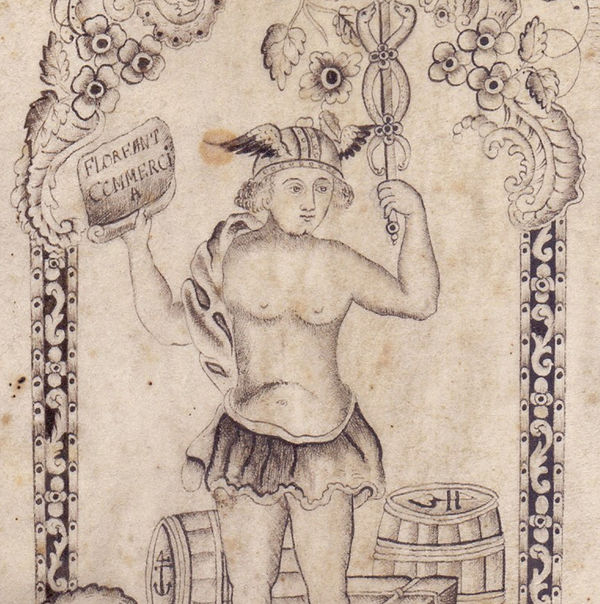 FLOREANT
COMMERCI
A